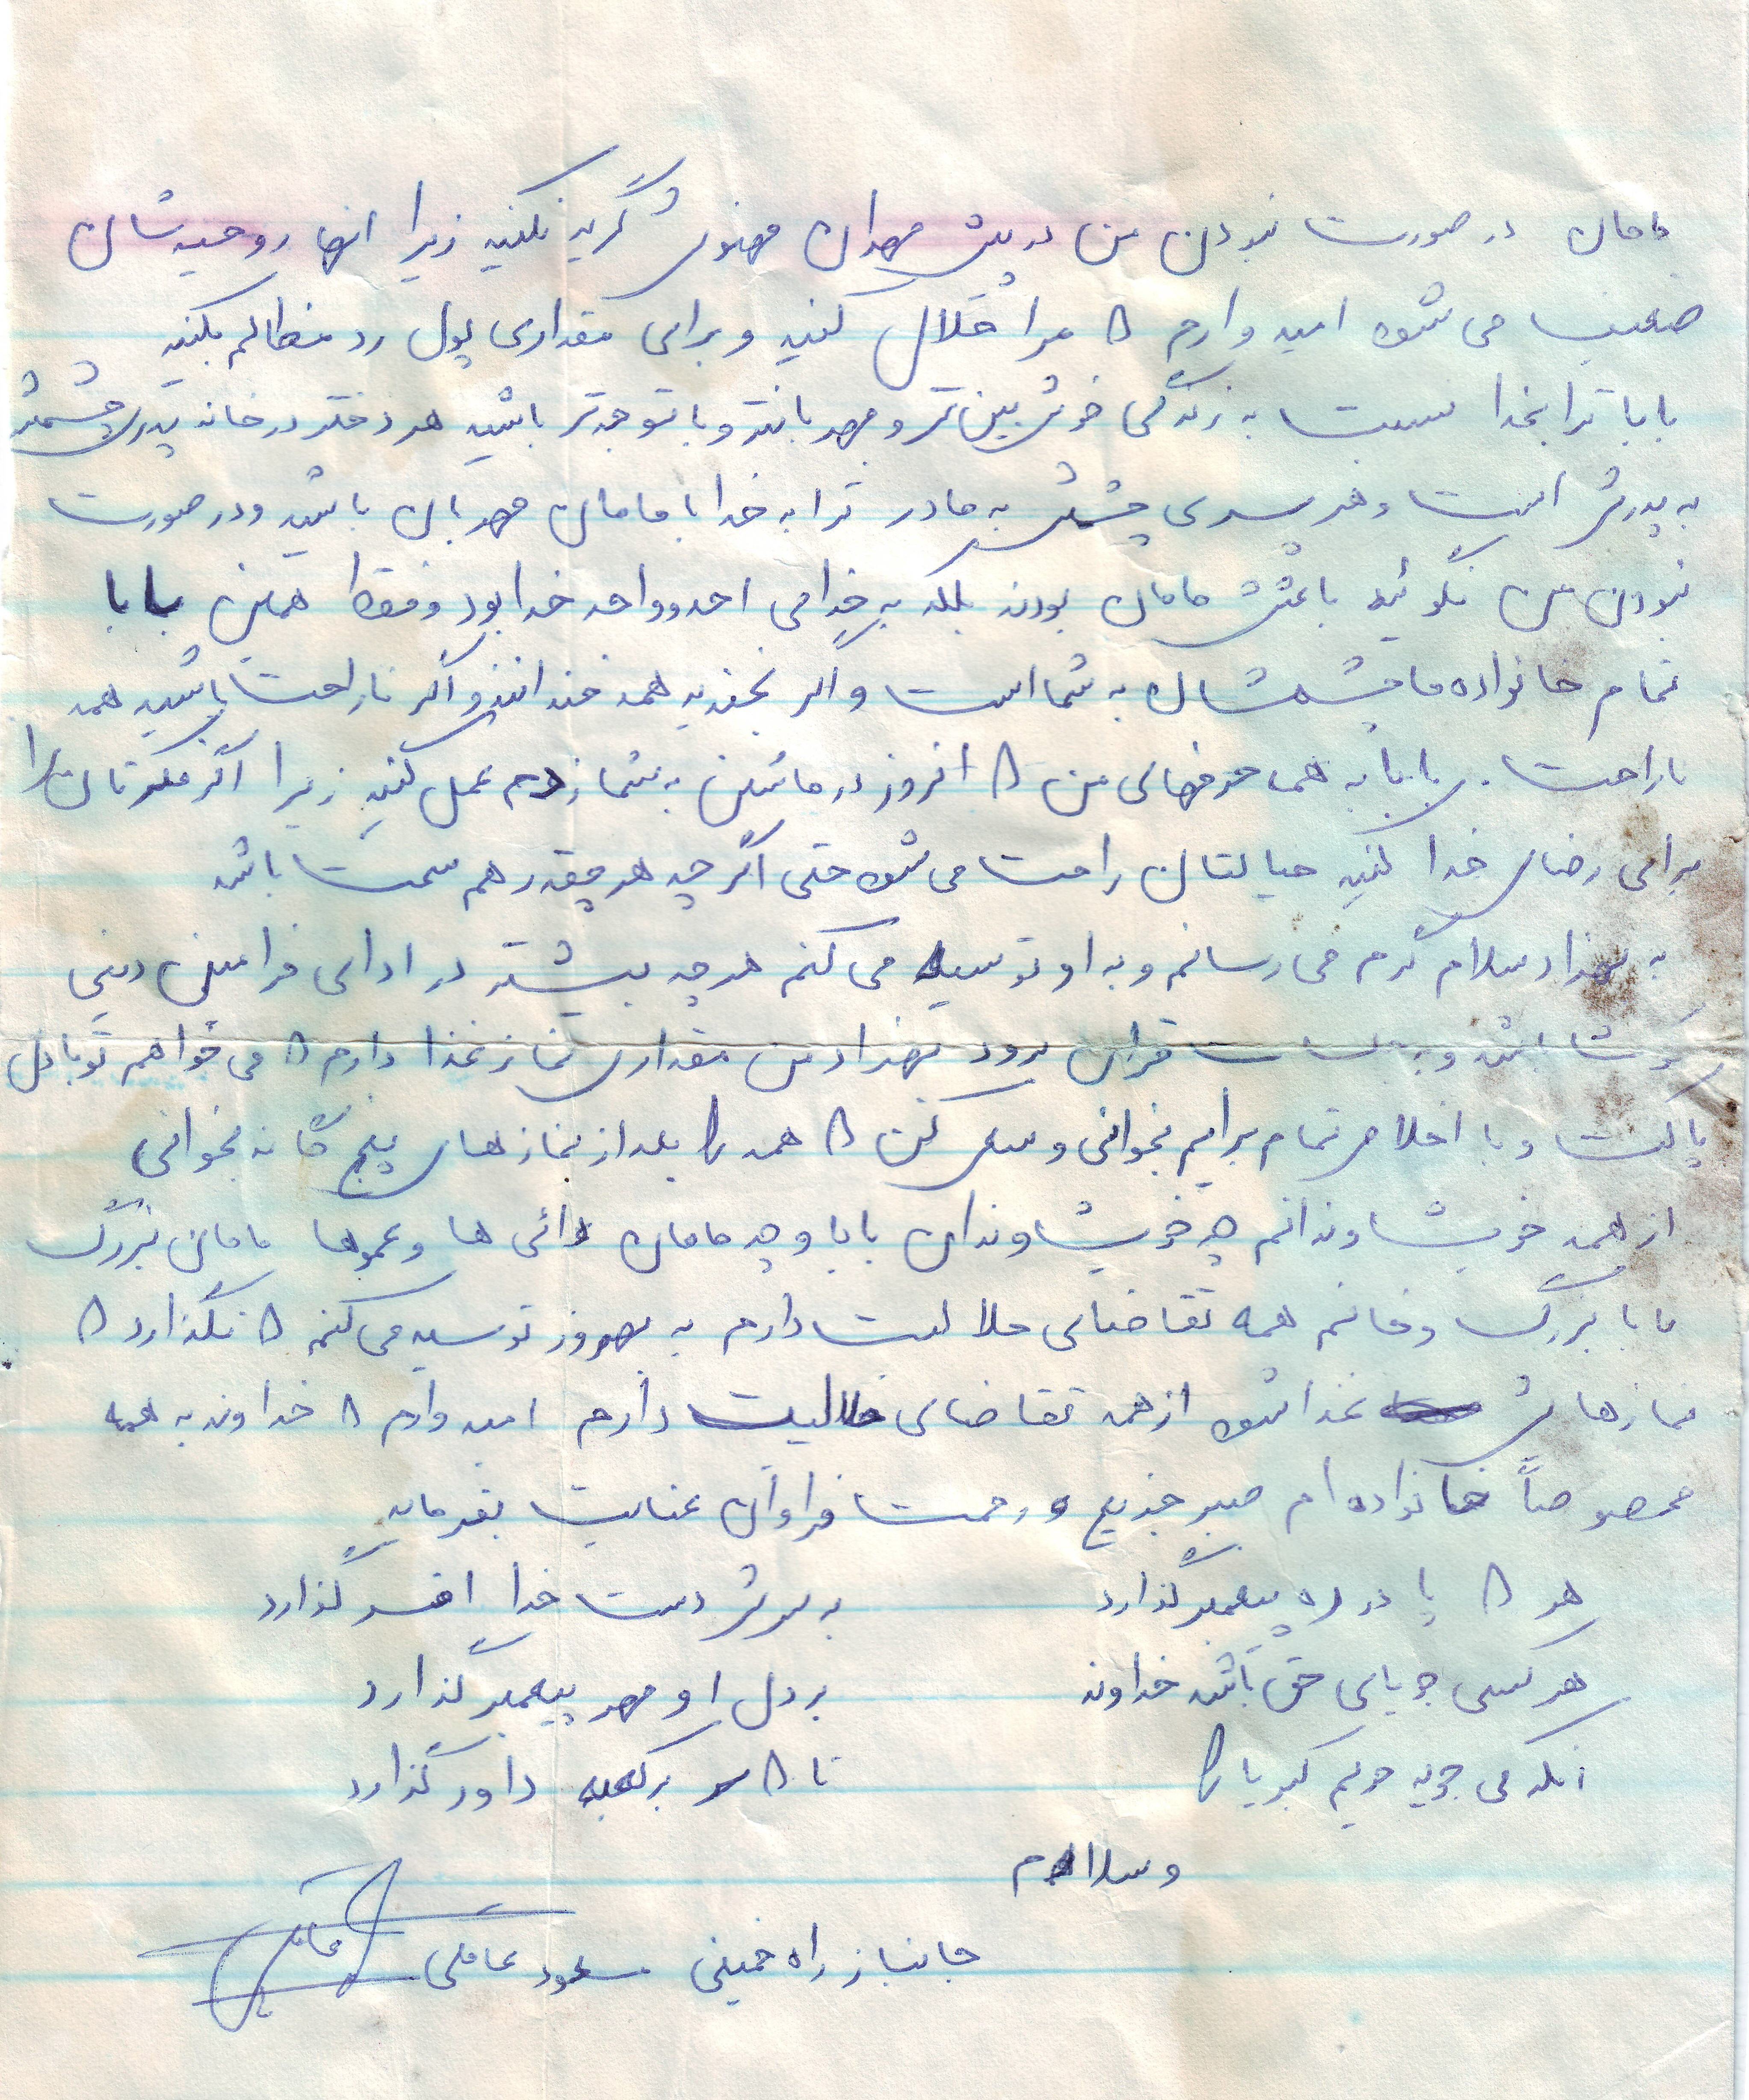 مامان در صورت نبودن من در پیش مهران مهنوش گریه نکنید زیرا انها روحیه شان
ضعیف می شود امید وارم که مرا حلال کنید و برای مقداری پول رد مظالم بکنید
بابا ترا بخدا نسبت به زندگی خوش بین تر و مهربانتر و با توجه تر باشید هر دختر در خانه پدری چشمش
به پدرش است و هر پسری چشمش به مادر ترا به خدا با مامان مهربان باشید و در صورت
نبودن من نگوئید باعثش مامان بودند بلکه به خدای احد و واحد خدا بود و فقط همین بابا
تمام خانواده ما چشمشان به شما است و اگر بخندید همه خندانند و اگر ناراحت باشید همه
ناراحت . بابا به همه حرفهای من که امروز در ماشین به شما زدم عمل کنید زیرا اگر فکرتان را
برای رضای خدا کنید خیالتان راحت می شود حتی اگر چه هر چقدر هم سخت باشد
به بهزاد سلام گرم می رسانم و به او توسیه می کنم هر چه بیشتر در ادای فرامین دینی
کوشا باشد و به جلسات قران برود بهزاد من مقداری نماز غذا دارم که می خواهم تو با دل
پاکت و با اخلاص تمام برایم بخوانی و سعی کن که همه را بعد از نماز های پنج گانه بخوانی
از همه خویشاوندانم چه خویشاوندان بابا و چه مامان دائی ها و عموها مامان بزرگ
بابا بزرگ و خانم همه تقاضای حلالیت دارم به بهروز توسیه می کنم که نگذارد که
نمازهایش غذا شود از همه تقاضای حلالیت دارم امید وارم که خداوند به همه
مخصوصاً خانواده ام صبر جزیع و رحمت فراوان عنایت بفرماید
هر که پا در ره پیغمبر گذارد به سرش دست خدا افسر گذارد
هر کسی جویای حق باشد خداوند بر دل او مهر پیغمبر گذارد
انکه می جوید حریم کبریا را تا که سر بر کعبه داور گذارد
وسلاام
جانباز راه خمینی مسعود عاملی